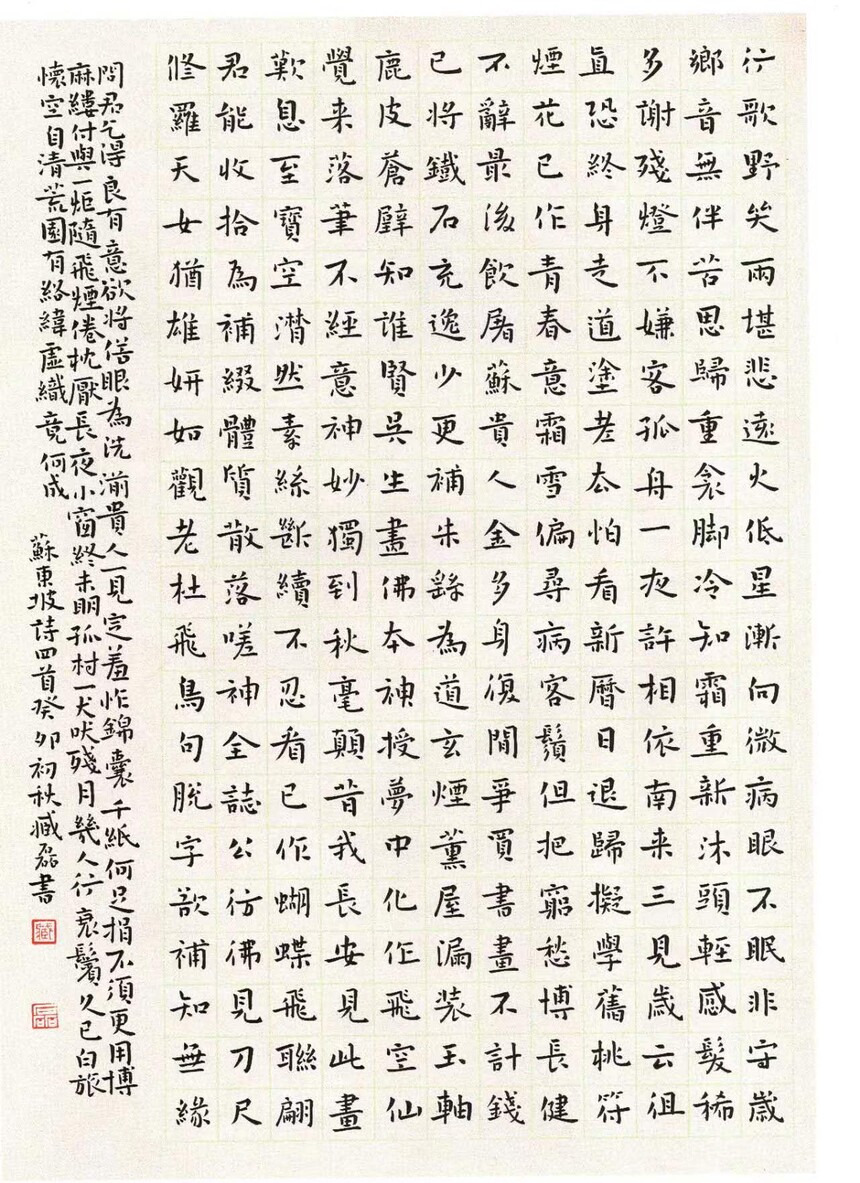 行歌野哭兩堪悲遠火低星漸向微病眼不眠非守歲
鄉音無伴苦思歸重衾脚冷知霜重新沐頭輕感髮稀
多謝殘燈不嫌客孤舟一夜許相依南来三見歲云徂
直恐終身走道塗老去怕看新曆日退歸擬學舊桃符
煙花已作青春意霜雪偏尋病客鬚但把窮愁博長健
不辭最後飲屠蘇貴人金多身復閒爭買書畫不計錢
已將鐵石充逸少更補朱繇為道玄煙薰屋漏裝玉軸
鹿皮蒼璧知誰賢吳生畫佛本神授夢中化作飛空仙
覺来落筆不經意神妙獨到秋毫顛昔我長安見此畫
歎息至寶空潸然素絲斷續不忍看已作蝴蝶飛聯翩
君能收拾為補綴體質散落嗟神全誌公彷彿見刀尺
修羅天女猶雄妍如觀老杜飛鳥句脫字欲補知無緣
問君乞得良有意欲將俗眼為洗湔貴人一見定羞怍錦囊千紙何足捐不須更用博
麻縷付與一炬隨飛煙倦枕厭長夜小窗終未明孤村一犬吠殘月幾人行衰鬢久已白旅
懷空自清荒園有絡緯虛織竟何成 蘇東坡詩四首癸卯初秋臧磊書
臧
磊